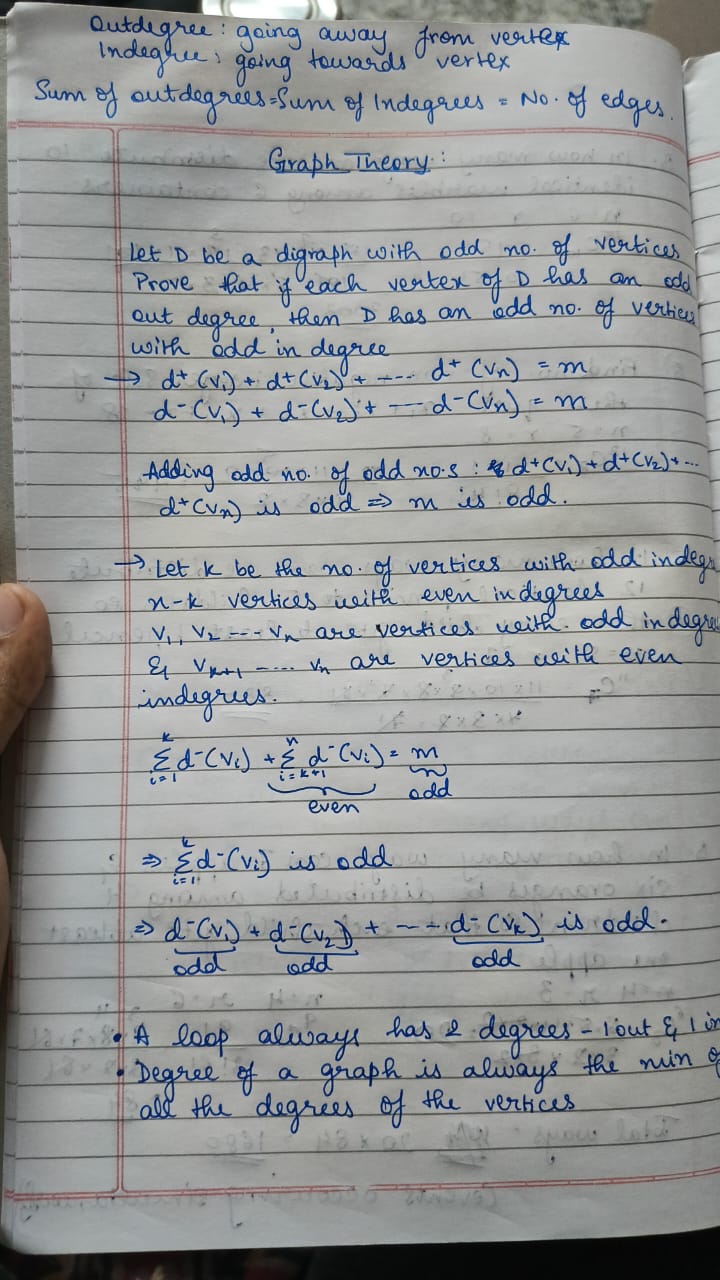 Outdegree: going away from vertex
Indegree: going towards vertex
Sum of outdegrees = Sum of Indegrees = No. of edges.
Graph Theory:
Let D be a digraph with odd no. of vertices
Prove that if each vertex of D has an odd
out degree, then D has an odd no. of vertices
with odd in degree
→ d+(v1) + d+(v2) + ---- d+(vn) = m
d-(v1) + d-(v2) + --- d-(vn) = m
Adding odd no. of odd no.s : d+(v1) + d+(v2) + ...
d+(vn) is odd ⇒ m is odd.
→ Let k be the no. of vertices with odd indegr
n-k vertices with even indegrees
v1, v2 --- vk are vertices with odd indegre
& vk+1 ---- vn are vertices with even
indegrees.
k∑i=1 d-(vi) + n∑i=k+1 d-(vi) = m
even odd
⇒ k∑i=1 d-(vi) is odd
⇒ d-(v1) + d-(v2) + --- d-(vk) is odd.
odd odd odd
• A loop always has 2 degrees - 1 out & 1 in
• Degree of a graph is always the min of
all the degrees of the vertices